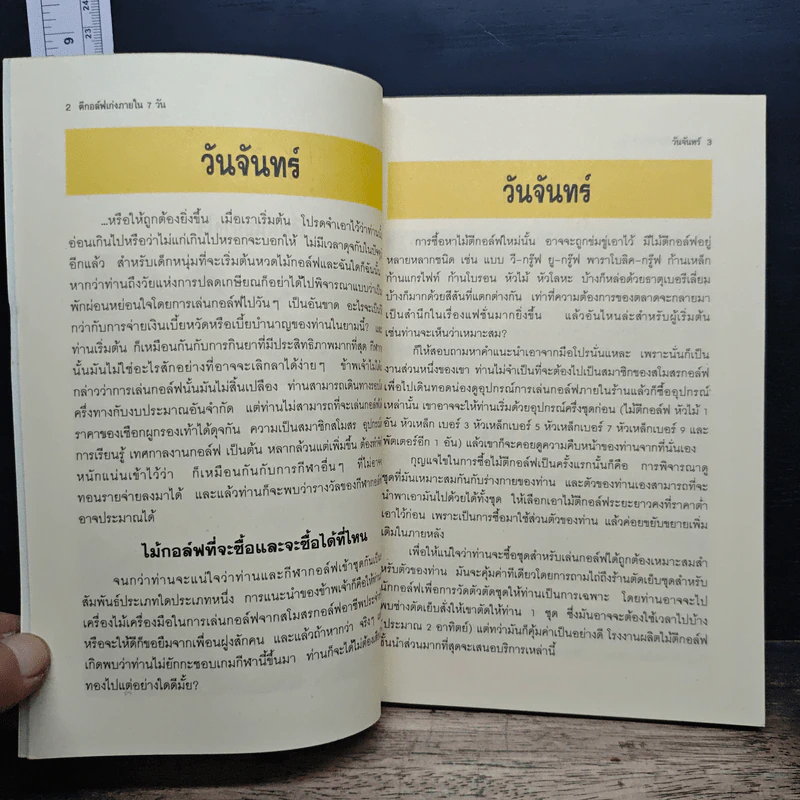 9
2 ตีกอล์ฟเก่งภายใน 7 วัน
วันจันทร์
...หรือให้ถูกต้องยิ่งขึ้น เมื่อเราเริ่มต้น โปรดจำเอาไว้ว่าท่านไม่
อ่อนเกินไปหรือว่าไม่แก่เกินไปหรอกจะบอกให้ ไม่มีเวลาดุจกันในปัจจุ
อีกแล้ว สำหรับเด็กหนุ่มที่จะเริ่มต้นหวดไม้กอล์ฟและฉันใดก็ฉันนั้น
หากว่าท่านถึงวัยแห่งการปลดเกษียณก็อย่าได้ไปพิจารณาแบบว่าเป็น
พักผ่อนหย่อนใจโดยการเล่นกอล์ฟไปวันๆ เป็นอันขาด อะไรจะเป็น
กว่ากับการจ่ายเงินเบี้ยหวัดหรือเบี้ยบำนาญของท่านในยามนี้?
ท่านเริ่มต้น ก็เหมือนกันกับการกินยาที่มีประสิทธิภาพมากที่สุด กีฬา
นั้นมันไม่ใช่อะไรสักอย่างที่อาจจะเลิกลาได้ง่ายๆ ข้าพเจ้าไม่ได้
กล่าวว่าการเล่นกอล์ฟนั้นมันไม่สิ้นเปลือง ท่านสามารถเดินทาง
ครึ่งทางกับงบประมาณอันจำกัด แต่ท่านไม่สามารถที่จะเล่นกอล์ฟ
ราคาของเชือกผูกรองเท้าได้ดุจกัน ความเป็นสมาชิกสโมสร อุปกรณ์
การเรียนรู้ เทศกาลงานกอล์ฟ เป็นต้น หลากล้วนแต่เพิ่มขึ้น ต้อง
หนักแน่นเข้าไว้ว่า ก็เหมือนกันกับการกีฬาอื่นๆ ที่ไม่อาจ
ทอนรายจ่ายลงมาได้ และแล้วท่านก็จะพบว่ารางวัลของกีฬากอล์ฟ
อาจประมาณได้
ไม้กอล์ฟที่จะซื้อและจะซื้อได้ที่ไหน
จนกว่าท่านจะแน่ใจว่าท่านและกีฬากอล์ฟเข้าชุดกันเป็น
สัมพันธ์ประเภทใดประเภทหนึ่ง การแนะนำของข้าพเจ้าก็คือให้
เครื่องไม้เครื่องมือในการเล่นกอล์ฟจากสโมสรกอล์ฟอาชีพประจำ
หรือจะให้ดีก็ขอยืมจากเพื่อนฝูงสักคน และแล้วถ้าหากว่า จริงๆ
เกิดพบว่าท่านไม่ยักกะชอบเกมกีฬานี้ขึ้นมา ท่านก็จะได้ไม่ต้อง
ทองไปแต่อย่างใดดีมั้ย?
วันจันทร์ 3
วันจันทร์
การซื้อหาไม้ตีกอล์ฟใหม่นั้น อาจจะถูกข่มขู่เอาไว้ มีไม้ตีกอล์ฟอยู่
หลายหลากชนิด เช่น แบบ วี-กรู๊ฟ ยู-กรู๊ฟ พาราโบลิค-กรู๊ฟ ก้านเหล็ก
ก้านแกรไฟท์ ก้านโบรอน หัวไม้ หัวโลหะ บ้างก็หล่อด้วยธาตุเบอรีเลี่ยม
บ้างก็มากด้วยสีสันที่แตกต่างกัน เท่าที่ความต้องการของตลาดจะกลายมา
เป็นสำนึกในเรื่องแฟชั่นมากยิ่งขึ้น แล้วอันไหนล่ะสำหรับผู้เริ่มต้น
เช่นท่านจะเห็นว่าเหมาะสม?
ก็ให้สอบถามหาคำแนะนำเอาจากมือโปรนั่นแหละ เพราะนั่นก็เป็น
งานส่วนหนึ่งของเขา ท่านไม่จำเป็นที่จะต้องไปเป็นสมาชิกของสโมสรกอล์ฟ
เพื่อไปเดินทอดน่องดูอุปกรณ์การเล่นกอล์ฟภายในร้านแล้วก็ซื้ออุปกรณ์
เหล่านั้น เขาอาจจะให้ท่านเริ่มด้วยอุปกรณ์ครึ่งชุดก่อน (ไม้ตีกอล์ฟ หัวไม้ 1
อัน หัวเหล็ก เบอร์ 3 หัวเหล็กเบอร์ 5 หัวเหล็กเบอร์ 7 หัวเหล็กเบอร์ 9 และ
พัตเตอร์อีก 1 อัน) แล้วเขาก็จะคอยดูความคืบหน้าของท่านจากที่นั่นเอง
กุญแจไขในการซื้อไม้ตีกอล์ฟเป็นครั้งแรกนั้นก็คือ การพิจารณาดู
ชุดที่มันเหมาะสมกันกับร่างกายของท่าน และตัวของท่านเองสามารถที่จะ
นำพาเอามันไปด้วยได้ทั้งชุด ให้เลือกเอาไม้ตีกอล์ฟระยะยาวคงที่ราคาต่ำ
เอาไว้ก่อน เพราะเป็นการซื้อมาใช้ส่วนตัวของท่าน แล้วค่อยขยับขยายเพิ่ม
เติมในภายหลัง
เพื่อให้แน่ใจว่าท่านจะซื้อชุดสำหรับเล่นกอล์ฟได้ถูกต้องเหมาะสมสำ
หรับตัวของท่าน มันจะคุ้มค่าทีเดียวโดยการถามไถ่ถึงร้านตัดเย็บชุดสำหรับ
นักกอล์ฟเพื่อการวัดตัวตัดชุดให้ท่านเป็นการเฉพาะ โดยท่านอาจจะไป
พบช่างตัดเย็บสั่งให้เขาตัดให้ท่าน 1 ชุด ซึ่งมันอาจจะต้องใช้เวลาไปบ้าง
(ประมาณ 2 อาทิตย์) แต่ทว่ามันก็คุ้มค่าเป็นอย่างดี โรงงานผลิตไม้ตีกอล์ฟ
ชั้นนำส่วนมากที่สุดจะเสนอบริการเหล่านี้